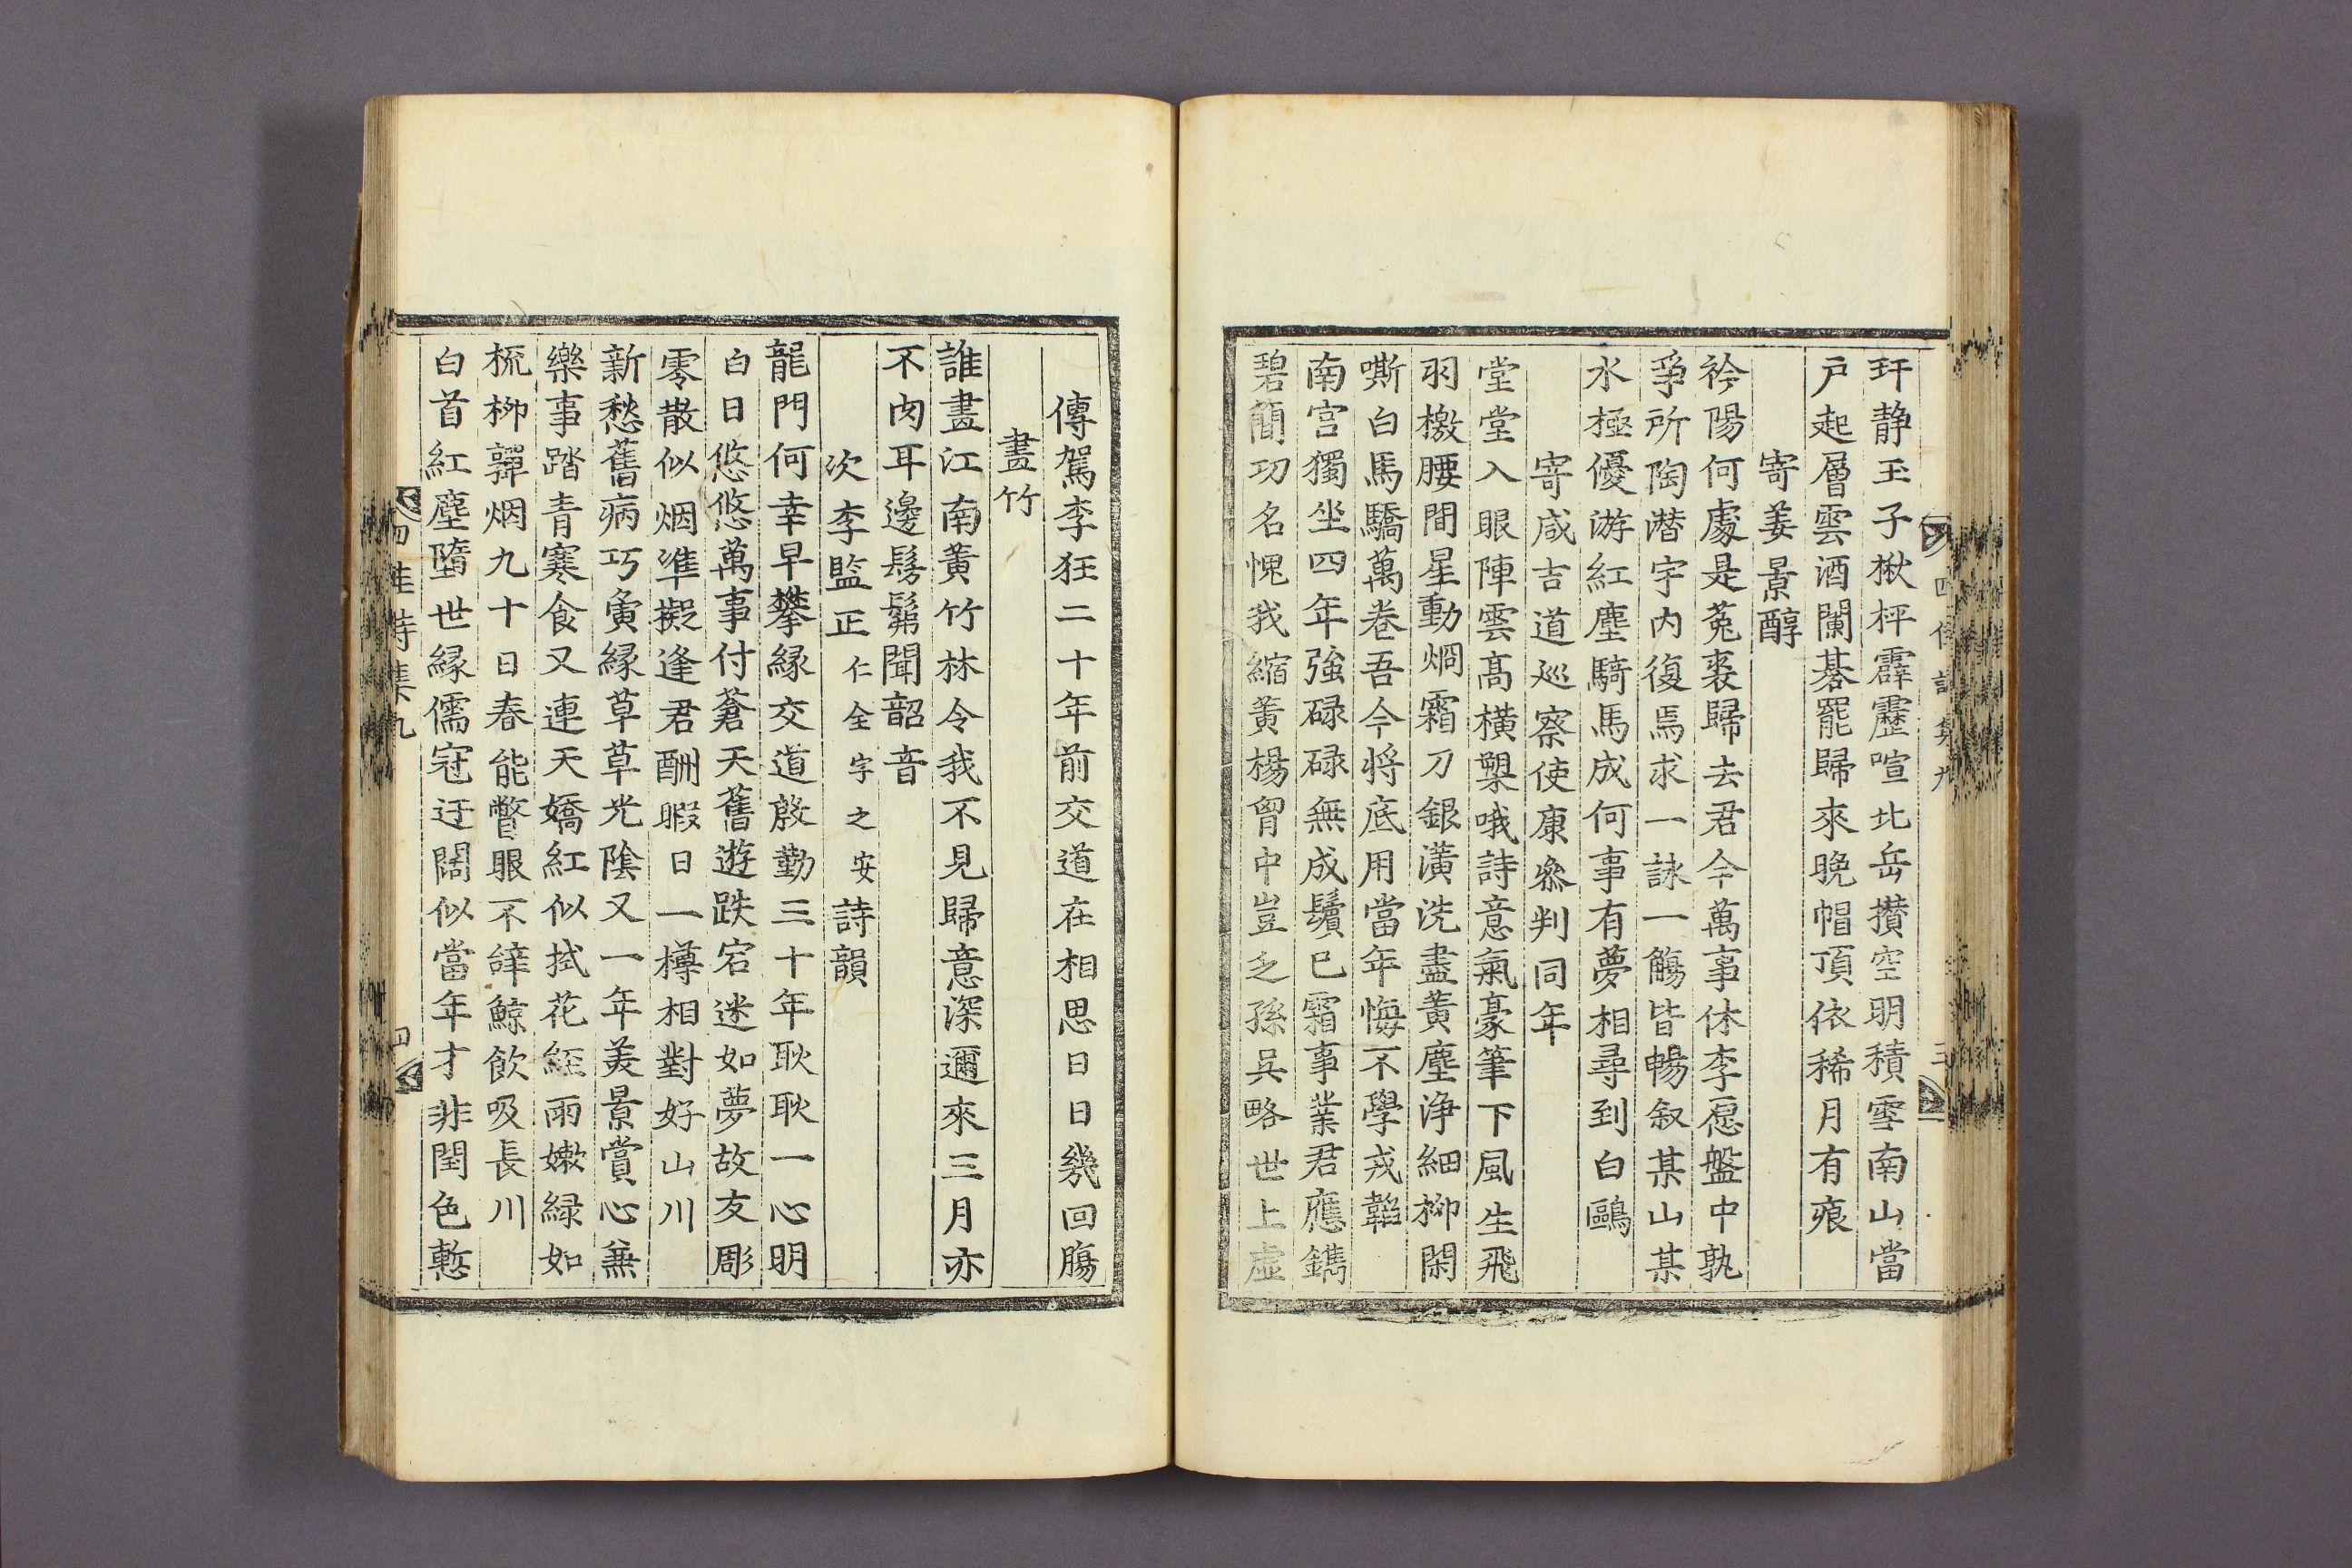 玕静玉子楸枰霹靂喧北岳攅空明積雪南山當
戶起層雲酒闌棊罷歸來晚帽頂依稀月有痕
寄姜景醇
衿陽何處是菟裘歸去君今萬事休李愿盤中孰
爭所陶潜宇内復焉求一詠一觴皆暢叙某山某
水極優游紅塵騎馬成何事有夢相尋到白鷗
寄咸吉道巡察使康叅判同年
堂堂入眼陣雲高橫槊哦詩意氣豪筆下風生飛
羽檄腰間星動烱霜刀銀潢洗盡黄塵淨細柳閑
嘶白馬驕萬卷吾今将底用當年悔不學戎韜
南宫獨坐四年強碌碌無成鬢已霜事業君應鐫
碧簡功名愧我縮黄楊胷中豈乏孫吳略世上虛
四佳詩集九
三
傳駕李狂二十年前交道在相思日日幾回膓
畫竹
誰畫江南黄竹林令我不見歸意深邇來三月亦
不肉耳邊髣髴聞韶音
次李監正仁全字之安詩韻
龍門何幸早攀緣交道慇勤三十年耿耿一心明
白日悠悠萬事付蒼天舊遊跌宕迷如夢故友彫
零散似烟準擬逢君酬暇日一樽相對好山川
新愁舊病巧夤緣草草光陰又一年美景賞心兼
樂事踏青寒食又連天嬌紅似拭花經雨嫩緑如
梳柳嚲烟九十日春能瞥眼不辝鯨飮吸長川
白首紅塵墮世緣儒冠迂闊似當年才非閏色慙
四佳詩集九
四